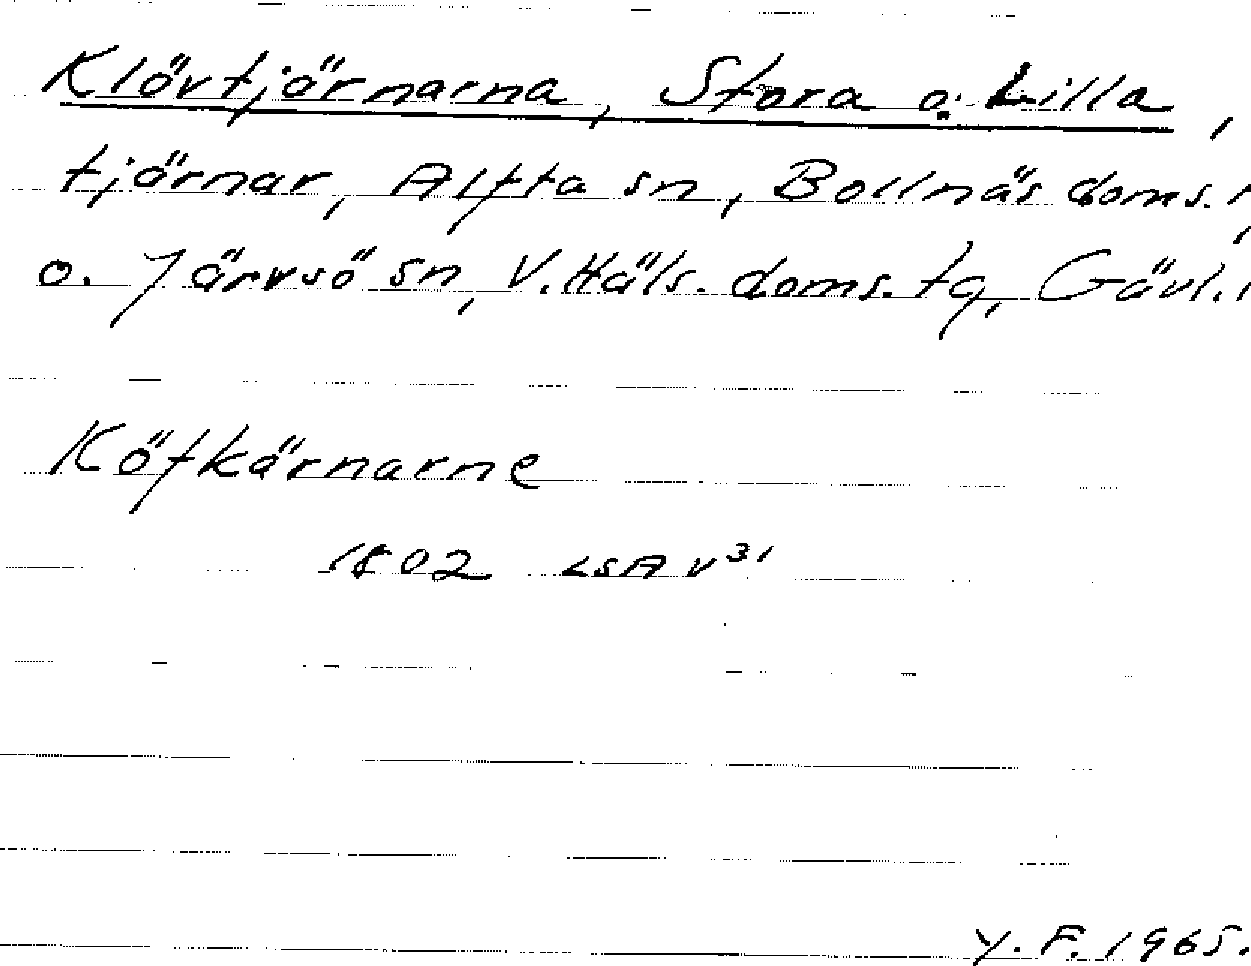 Klövtjärnarna, Stora o. Lilla,
tjärnar, Alfta sn, Bollnäs doms.
o. Järvsö sn, V. Häls. doms. tg, Gävl.
Köfkärnarne
1802 LSA v31
Y. F. 1965.